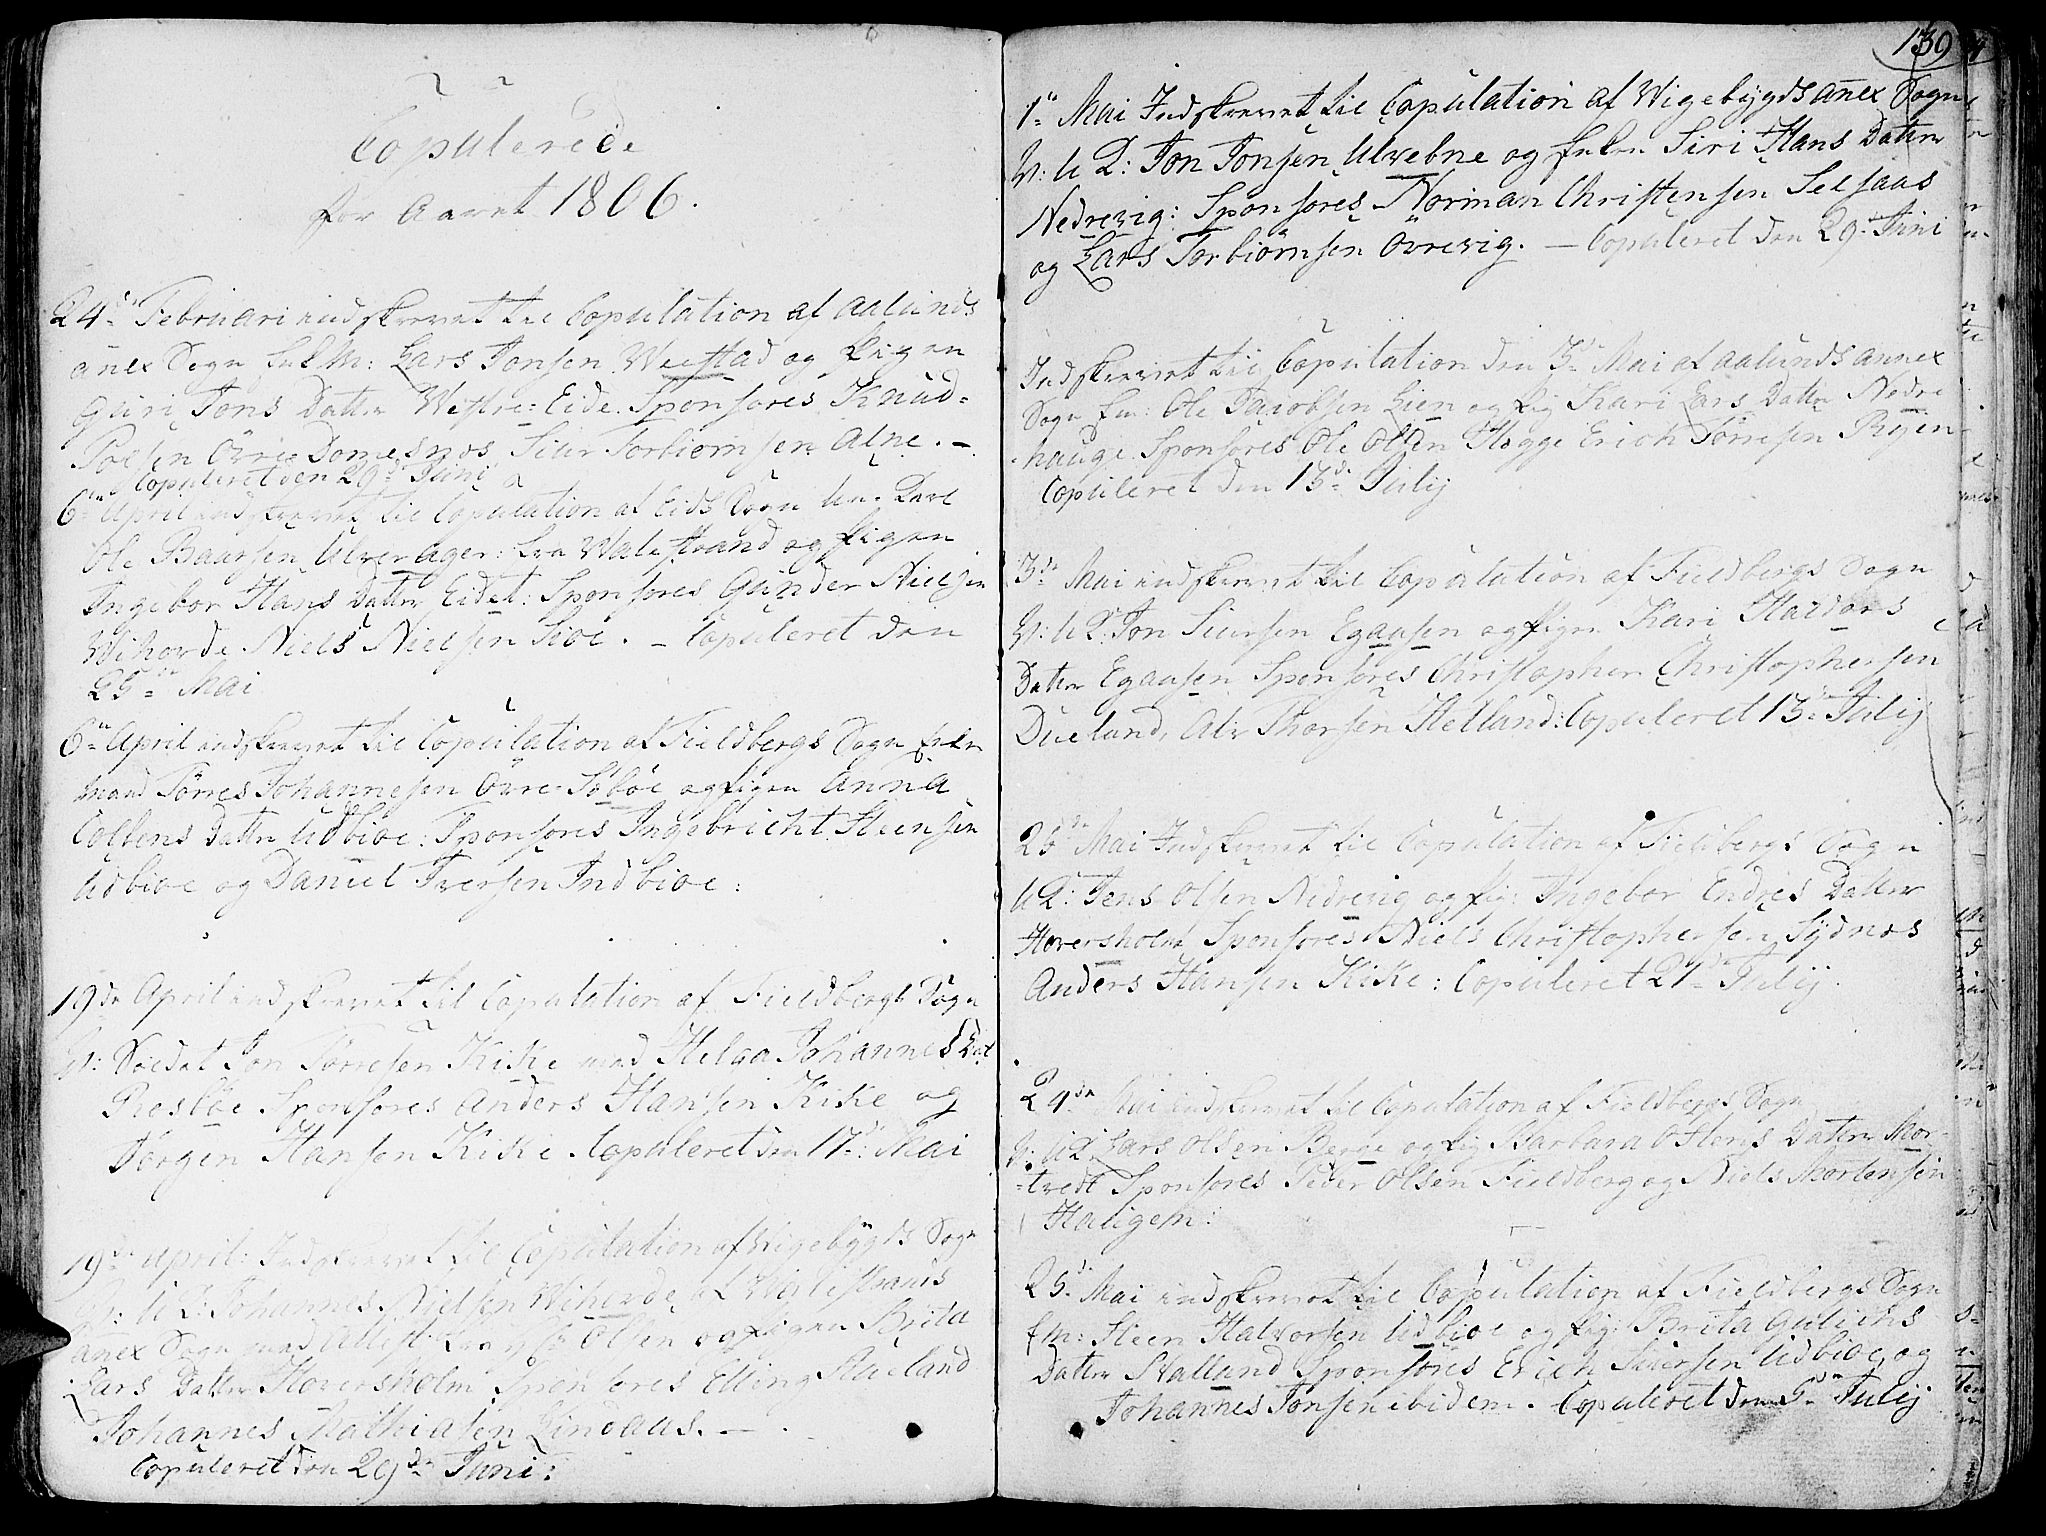 Copulerede
for Aaret 1806.
24de Februari indskrevet til Copulation af Aalunds
anex Sogn Enkm: Lars Jonsen Weestad og Pigen
Guri Jons Datter Westre-Eide. Sponsores Knud
Poelsen Övre Domesnes Siur Torbiornsen Alne. —
Copuleret den 29de Juni
6te April indskrevet til Copulation af Eids Sogn
Ole Baarsen Ulverager: fra Walestrand og Pigen
Ingebor Hans Datter Eidet: Sponsores Gunder Nielsen
Wihovde Niels Nielsen Sioe. — Copuleret den
25de Mai
6te April indskrevet til Copulation af Fieldbergs Sogn Enke
mand Törres Johannesen Övre Söböe og Pigen Anna
Colbens Datter Udbioe: Sponsores Ingebricht Steensen
Udbioe og Daniel Iversen Indbioe:
19de April indskrevet til Copulation af Fieldbergs Sogn
Soldat Jon Törresen Kike med Helga Johannes Dat
Sponsores Anders Hansen Kike og
Jörgen Hansen Kike. Copuleret den 17de Mai
19de April: Indskrevet til Copulation af Wigebygds Sogn
Johannes Nielsen Wihovde af Walestrands
anex Sogn med Olsen og Pigen Brita
Lars Datter Hoversholm Sponsores Elling
Johannes Mathiasen Lindaas. —
Copuleret den 29de Juni:
139
1te Mai Indskrevet til Copulation af Wigebygds anex Sogn
U: K: Jon Jonsen Ulvebne og Enken Siri Hans Datter
Nedrevig: Sponsores Norman Christensen Selsaas
og Lars Torbiörnsen Övrevig. — Copuleret den 29. Juni
Indskrevet til Copulation den 3de Mai af Aalunds annex
Sogn Em: Ole Jacobsen Lien og Pig Kari Lars Datter Nedre
hauge Sponsores Ole Olsen Hegge Erich Törresen Ryen
Copuleret den 13de Julij
3de Mai indskrevet til Copulation af Fieldbergs Sogn
U: K: Jon Siursen Egausen og Pigen Kari Haldors
Datter Egausen Sponsores Christopher Christophersen
Dueland, Thorsen Helland: Copuleret 13de Julij
25de Mai Indskrevet til Copulation af Fieldbergs Sogn
U K: Jens Olsen Nedrevig og Pig: Ingebor Endres Datter
Hoversholm Sponsores Niels Christophersen Sydnes
Anders Hansen Kike: Copuleret 21de Julij.
24de Mai indskrevet til Copulation af Fieldbergs Sogn
U: K: Lars Olsen Berge og Pig Barbara Ostens Datter Mor-
tvedt Sponsores Peder Olsen Fieldberg og Niels Mortensen
Haugem:
25de Mai indskrevet til Copulation af Fieldbergs Sogn
Em: Steen Halvorsen Udbioe og Pig: Brita Gulichs
Datter Walland Sponsores Erich Siursen Udbioe og
Johannes Jonsen ibidem. Copuleret den 5de Julij